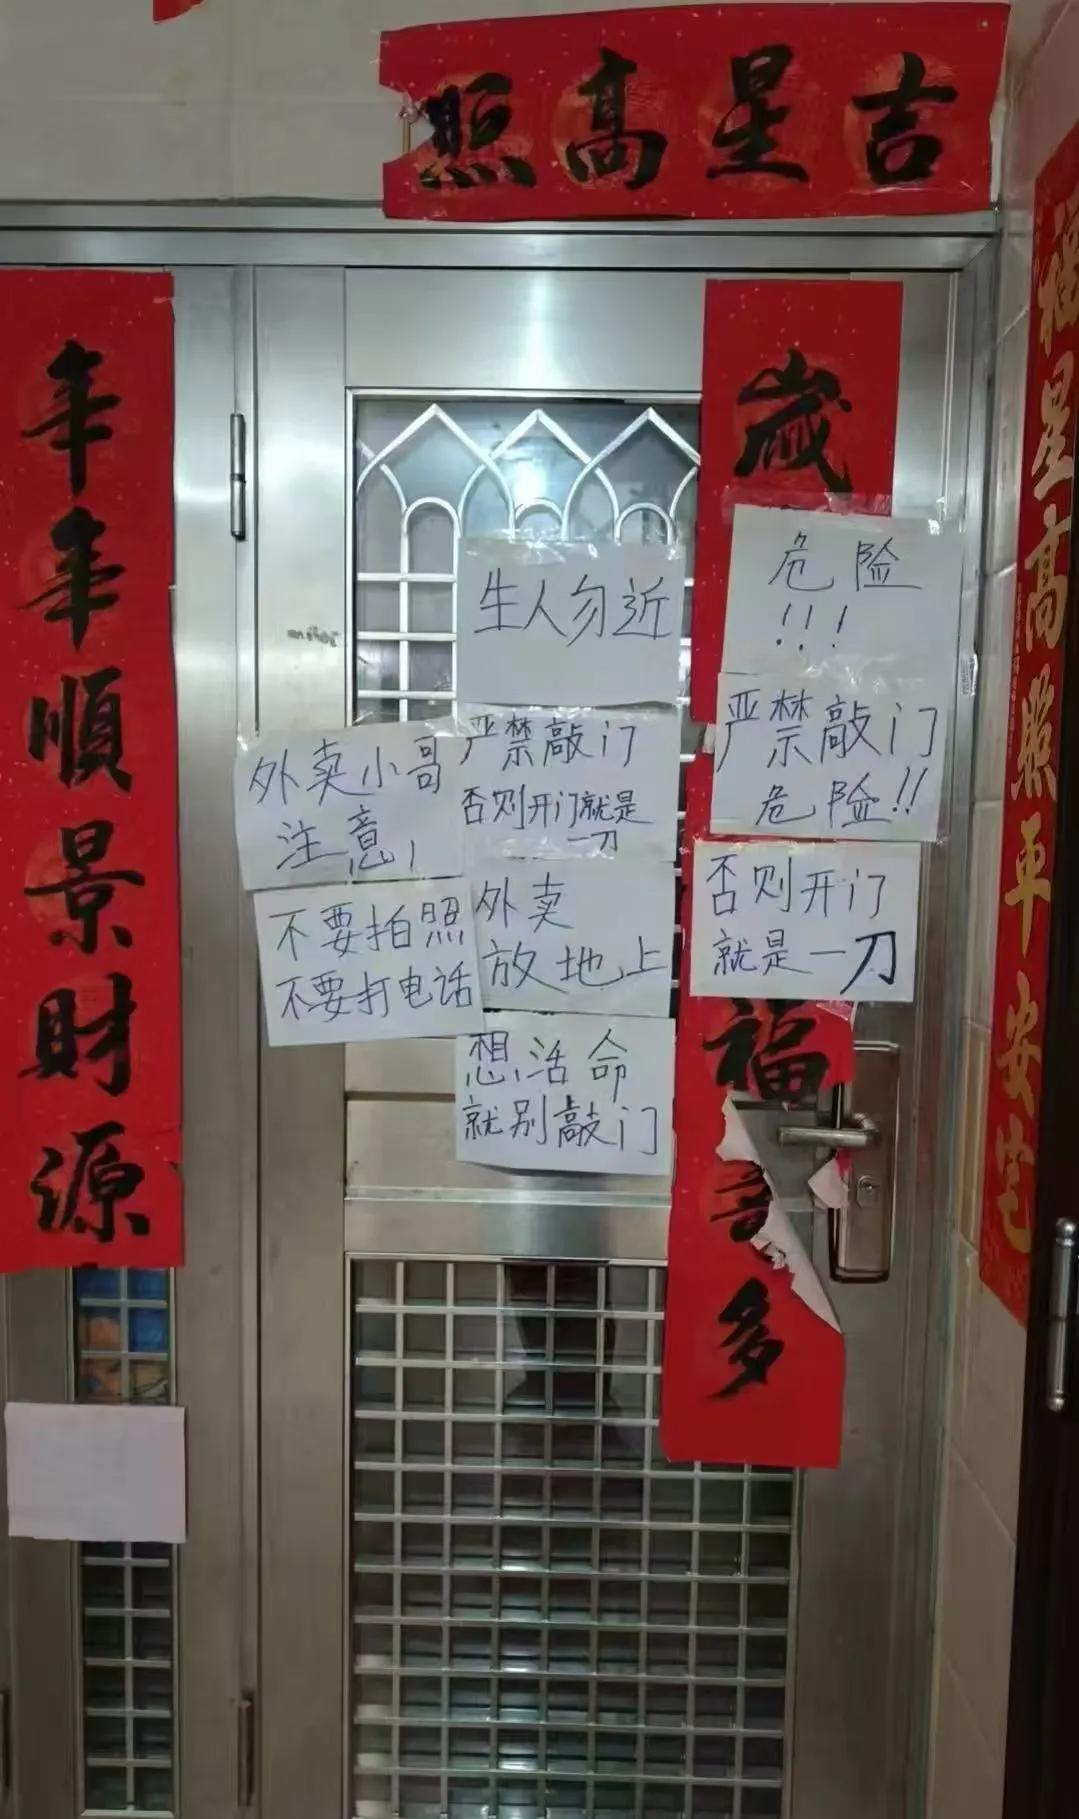 吉星高照
年年順景財源
歲
福
多
福星高照平安宅
生人勿近
危险
!!!
严禁敲门
否则开门就是
一刀
严禁敲门
危险!!
外卖小哥
注意!
不要拍照
不要打电话
外卖
放地上
否则开门
就是一刀
想活命
就别敲门